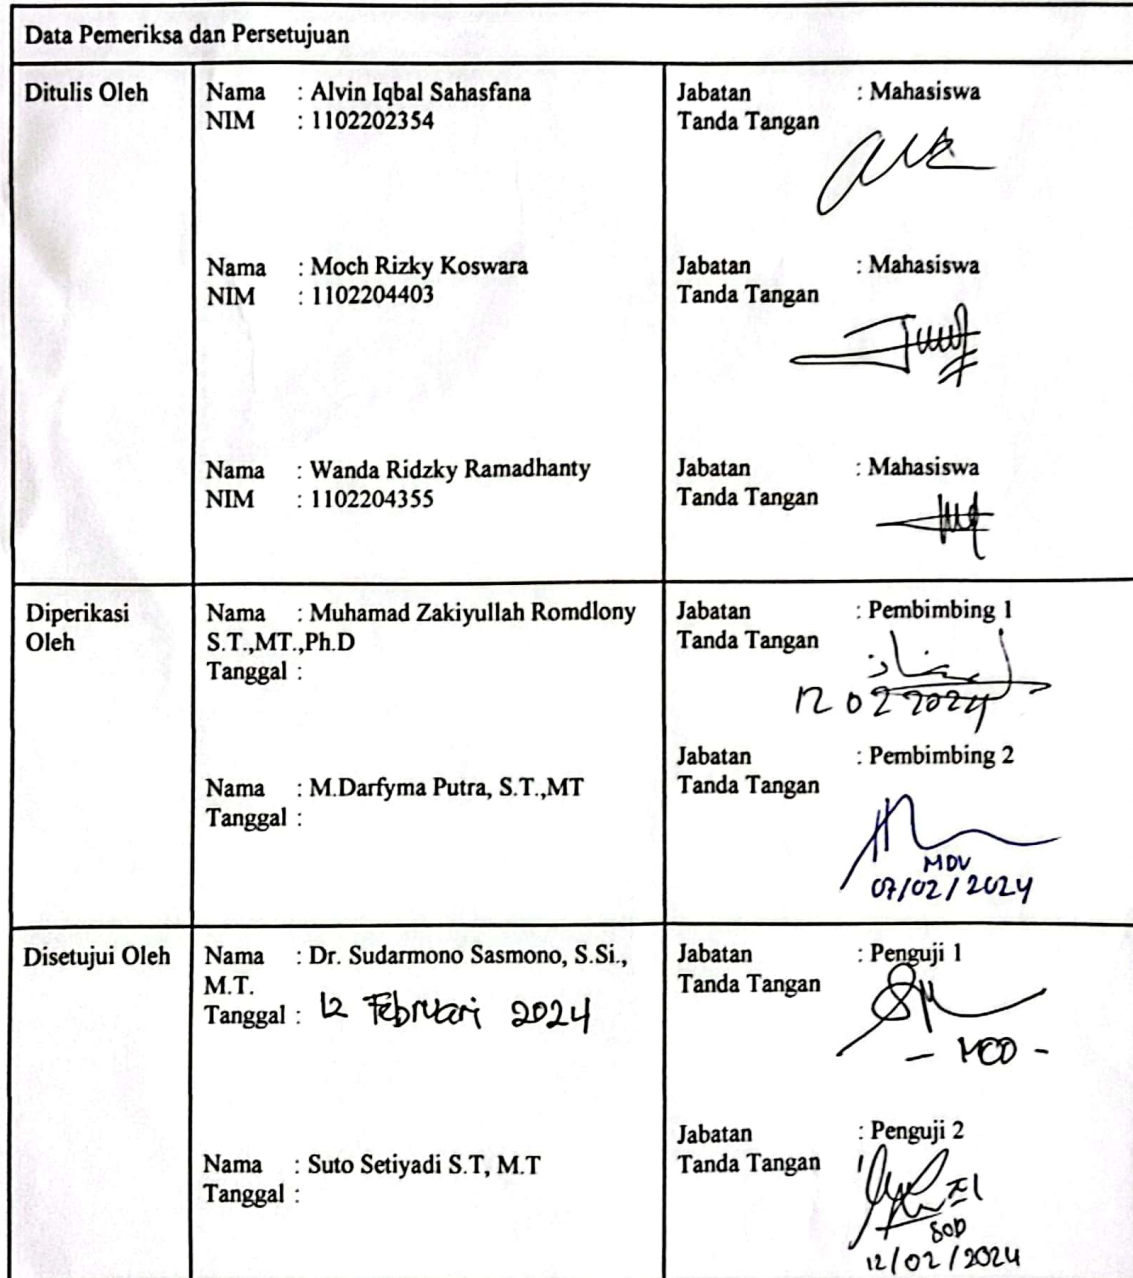 Data Pemeriksa dan Persetujuan
Ditulis Oleh
Nama : Alvin Iqbal Sahasfana
NIM : 1102202354
Jabatan : Mahasiswa
Tanda Tangan
Nama : Moch Rizky Koswara
NIM : 1102204403
Jabatan : Mahasiswa
Tanda Tangan
Nama : Wanda Ridzky Ramadhanty
NIM : 1102204355
Jabatan : Mahasiswa
Tanda Tangan
Diperikasi
Oleh
Nama : Muhamad Zakiyullah Romdlony
S.T.,MT.,Ph.D
Tanggal :
Jabatan : Pembimbing 1
Tanda Tangan
12 02 2024
Nama : M.Darfyma Putra, S.T.,MT
Tanggal :
Jabatan : Pembimbing 2
Tanda Tangan
MDV
07/02/2024
Disetujui Oleh
Nama : Dr. Sudarmono Sasmono, S.Si.,
M.T.
Tanggal : 12 Februari 2024
Jabatan : Penguji 1
Tanda Tangan
Nama : Suto Setiyadi S.T, M.T
Tanggal :
Jabatan : Penguji 2
Tanda Tangan
12/02/2024